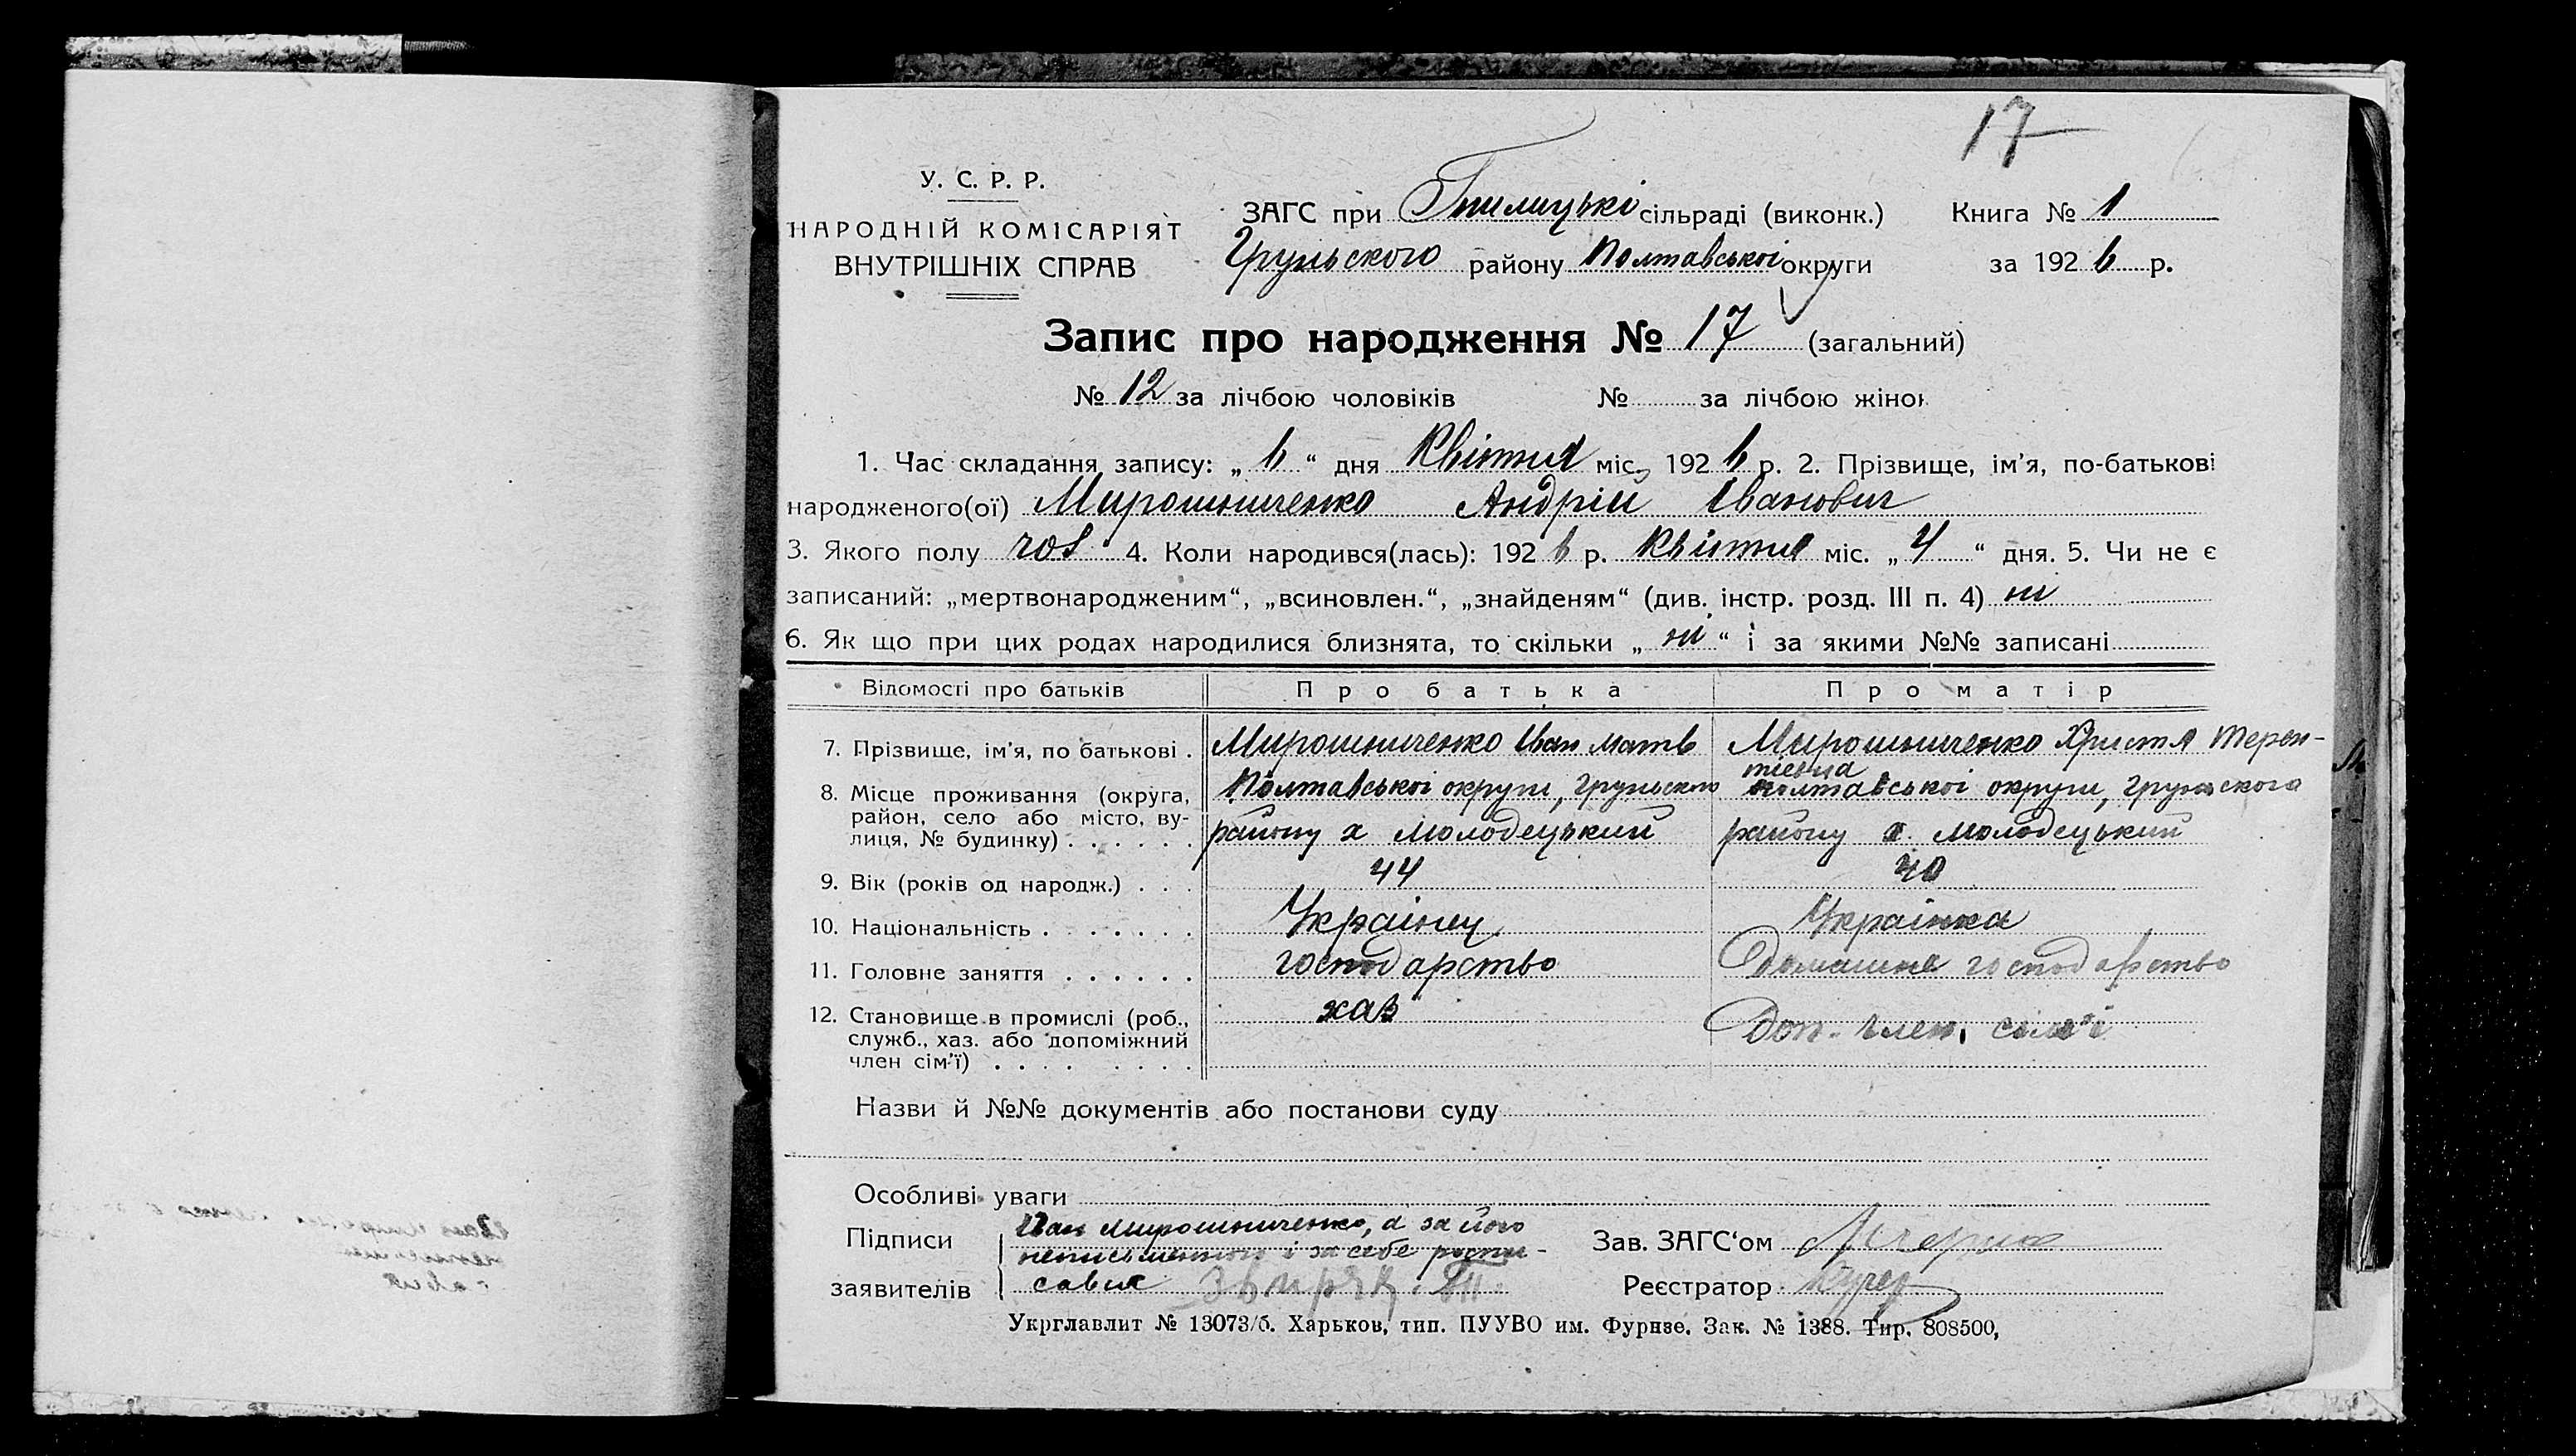 17
У. С. Р. Р.
НАРОДНІЙ КОМІСАРІЯТ
ВНУТРІШНІХ СПРАВ
ЗАГС при Гнилицькі сільраді (виконк.) Книга № 1
Грунського району Полтавської округи за 192 6 р.
Запис про народження № 17 (загальний)
№ 12 за лічбою чоловіків № за лічбою жінок
1. Час складання запису: „ 6 “ дня Квітня міс. 192 6 р. 2. Прізвище, ім’я, по-батькові
народженого(ої) Мирошниченко Андрій Іванович
3. Якого полу чол 4. Коли народився(лась): 192 6 р. Квітня міс. „ 4 “ дня. 5. Чи не є
записаний: „мертвонародженим“, „всиновлен.“, „знайденям“ (див. інстр. розд. III п. 4) ні
6. Як що при цих родах народилися близнята, то скільки „ ні “ і за якими №№ записані
Відомості про батьків Про батька Про матір
7. Прізвище, ім’я, по батькові . Мирошниченко Іван Матв Мирошниченко Христя Терен-
тіевна
8. Місце проживання (округа, Полтавської округи, Грунського Полтавської округи, Грунского
район, село або місто, ву-
лиця, № будинку) . . . . . . району х Молодецький району х. Молодецький
9. Вік (років од народж.) . . . 44 40
10. Національність . . . . . . . Українец Українка
11. Головне заняття . . . . . . господарство Домашне господарство
12. Становище в промислі (роб., хаз Доп. член. сімʼї
служб., хаз. або допоміжний
член сім’ї) . . . . . . . .
Назви й №№ документів або постанови суду
Особливі уваги
Підписи Іван Мирошниченко, а за його
неписьменного і за себе розпи-
заявителів савис Звиряк.
Зав. ЗАГС‘ом
Реєстратор Кучер
Укрглавлит № 13073/б. Харьков, тип. ПУУВО им. Фурнзе. Зак. № 1388. Тир. 808500,